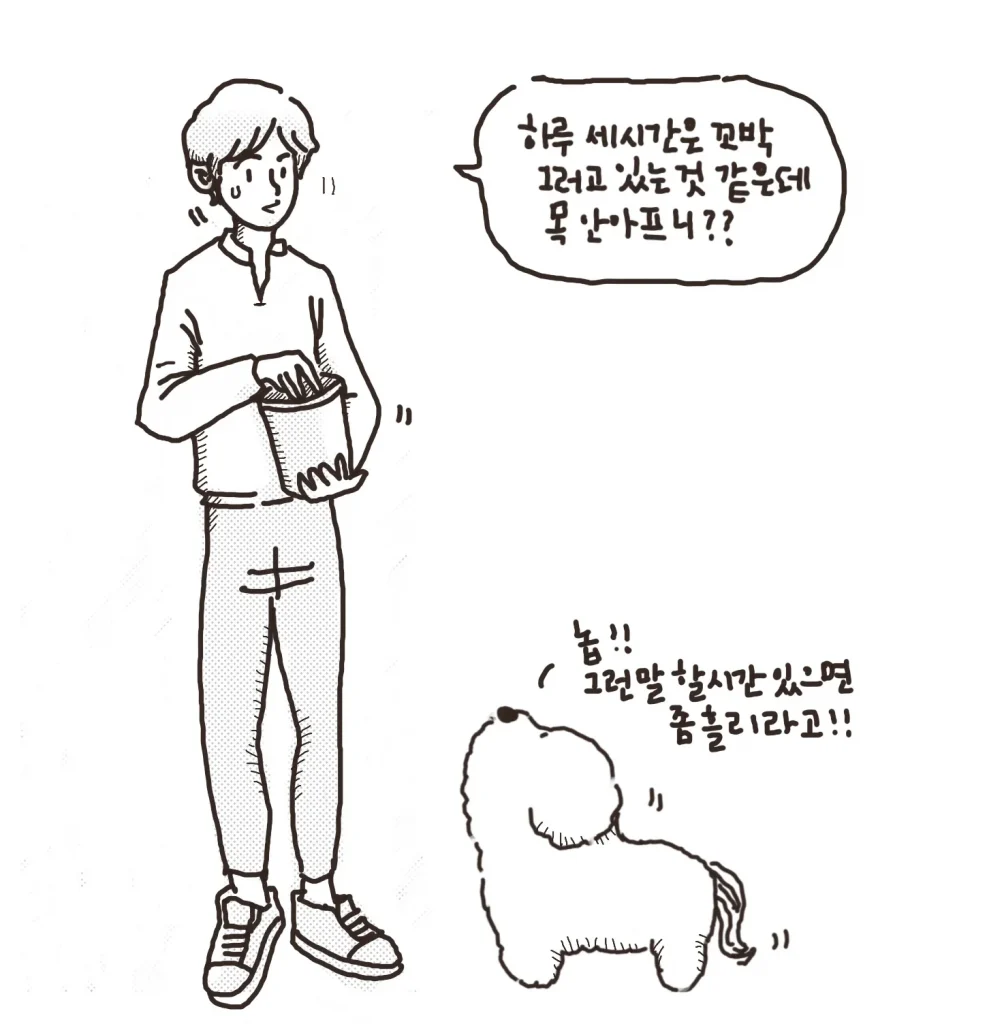 하루 세시간은 꼬박
그러고 있는것 같은데
목 안아프니??
놉!!
그런말 할시간 있으면
좀 흘리라고!!